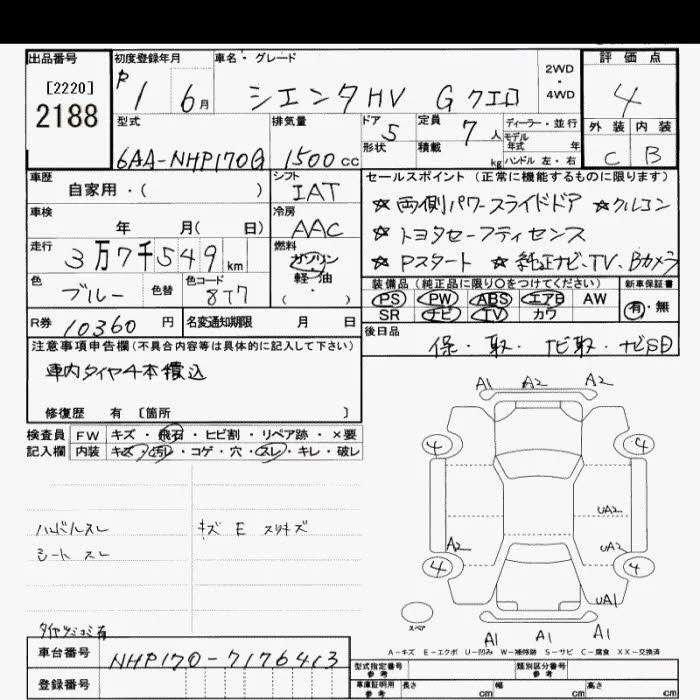 出品番号 初度登録年月 車名・グレード 2WD・4WD 評価点
[2220]
2188
R 1 6月 シエンタHV G クエロ 4
型式 排気量 ドア 5 定員 7 人 ディーラー・並行 外装 内装
モデル年式 年
6AA-NHP170G 1500 cc 形状 積載 kg ハンドル 左・右 C B
車歴 シフト セールスポイント (正常に機能するものに限ります)
自家用・( ) IAT ☆両側パワースライドドア ☆クルコン
車検 冷房 ☆トヨタセーフティセンス
年 月( 日) AAC ☆Pスタート ☆純正ナビ、TV、Bカメラ
走行 燃料
3万7千549km ガソリン
軽・油
色 色替 色コード 装備品 (純正品に限り○をつけてください) 新車保証書
ブルー 8T7 PS PW ABS エアB AW 有・無
SR ナビ TV カワ
R券 10360 円 名変通知期限 月 日 後日品
保・取・ナビ取・ナビSD
注意事項申告欄(不具合内容等は具体的に記入して下さい)
車内タイヤ4本積込
修復歴 有 [箇所 ]
検査員 FW キズ・飛石・ヒビ割・リペア跡・×要
記入欄 内装 キズ・汚レ・コゲ・穴・スレ・キレ・破レ
A1 A2 A2
4 4
UA2
A2 UA2
4 4
UA1
A1 A1 A1
スペア
ハンドルスレ キズ E スリキズ
シート スレ
タイヤツミコミ有
A-キズ E-エクボ U-凹み W-補修跡 S-サビ C-腐食 XX-交換済
車台番号 NHP170-7176413
型式指定番号 参考 類別区分番号 参考
登録番号 車庫証明用 参考 長さ cm 幅 cm 高さ cm